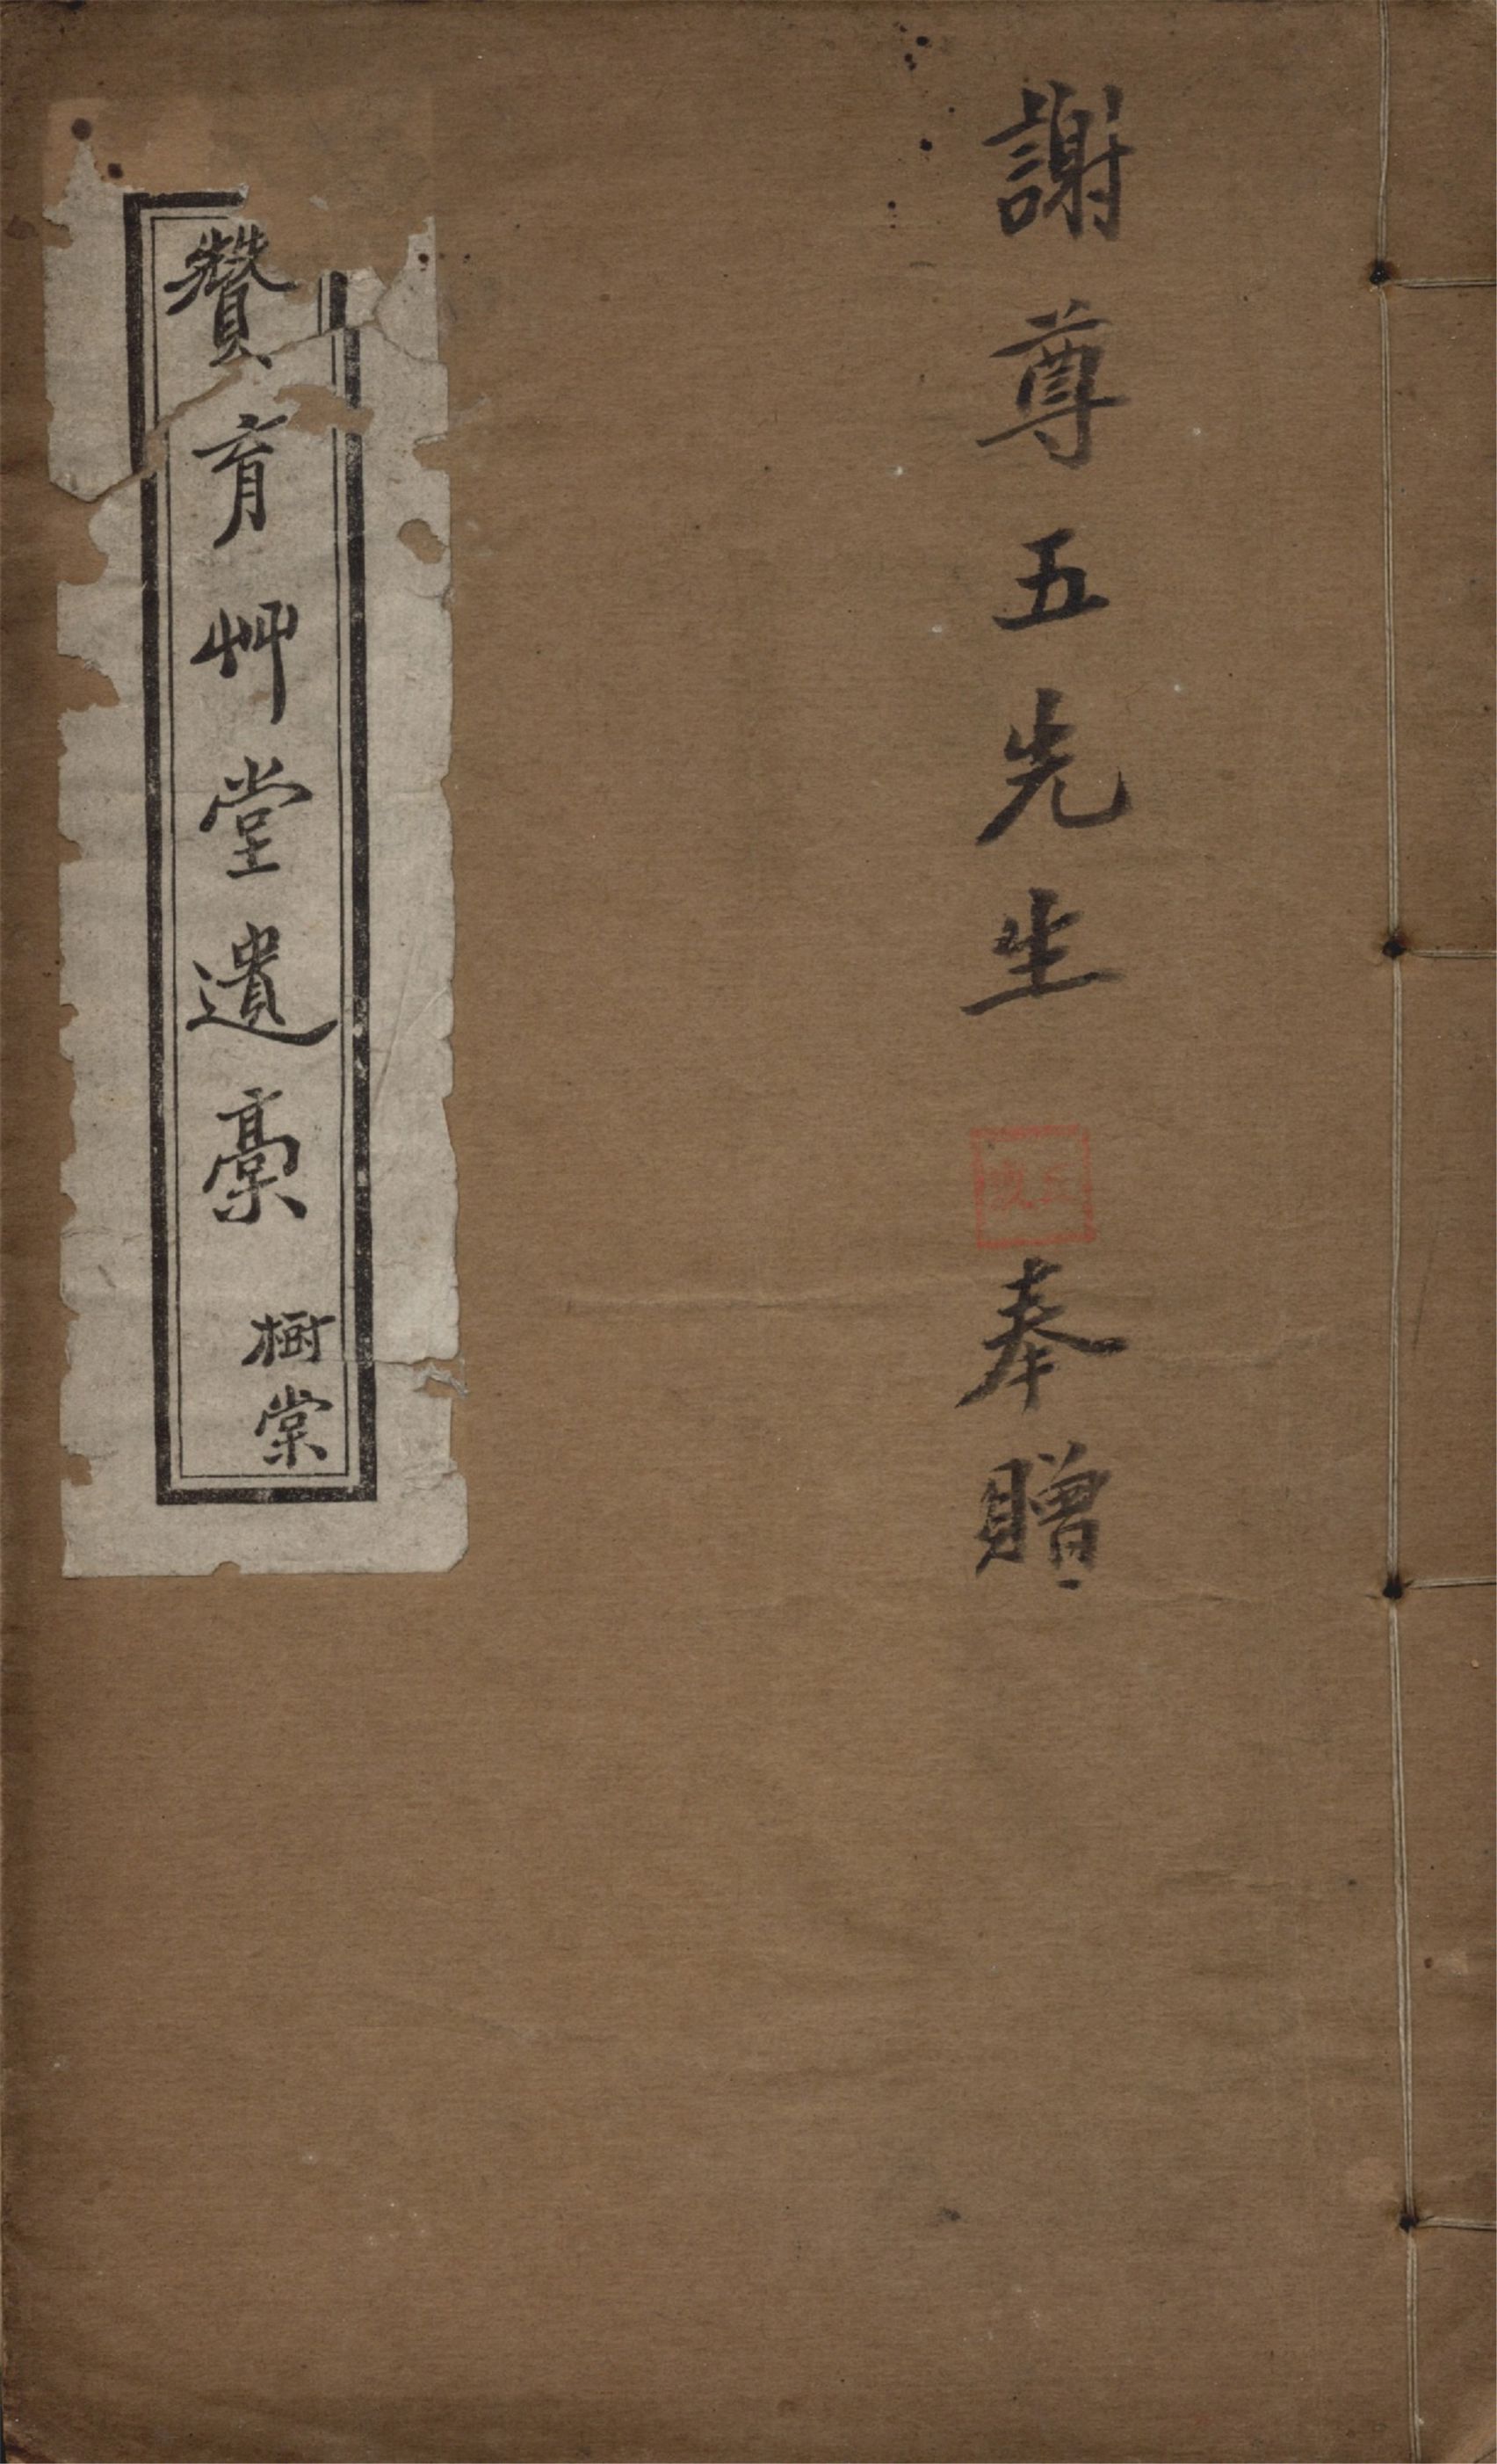 謝尊五先生
奉贈
贊育艸堂遺稾
樹棠